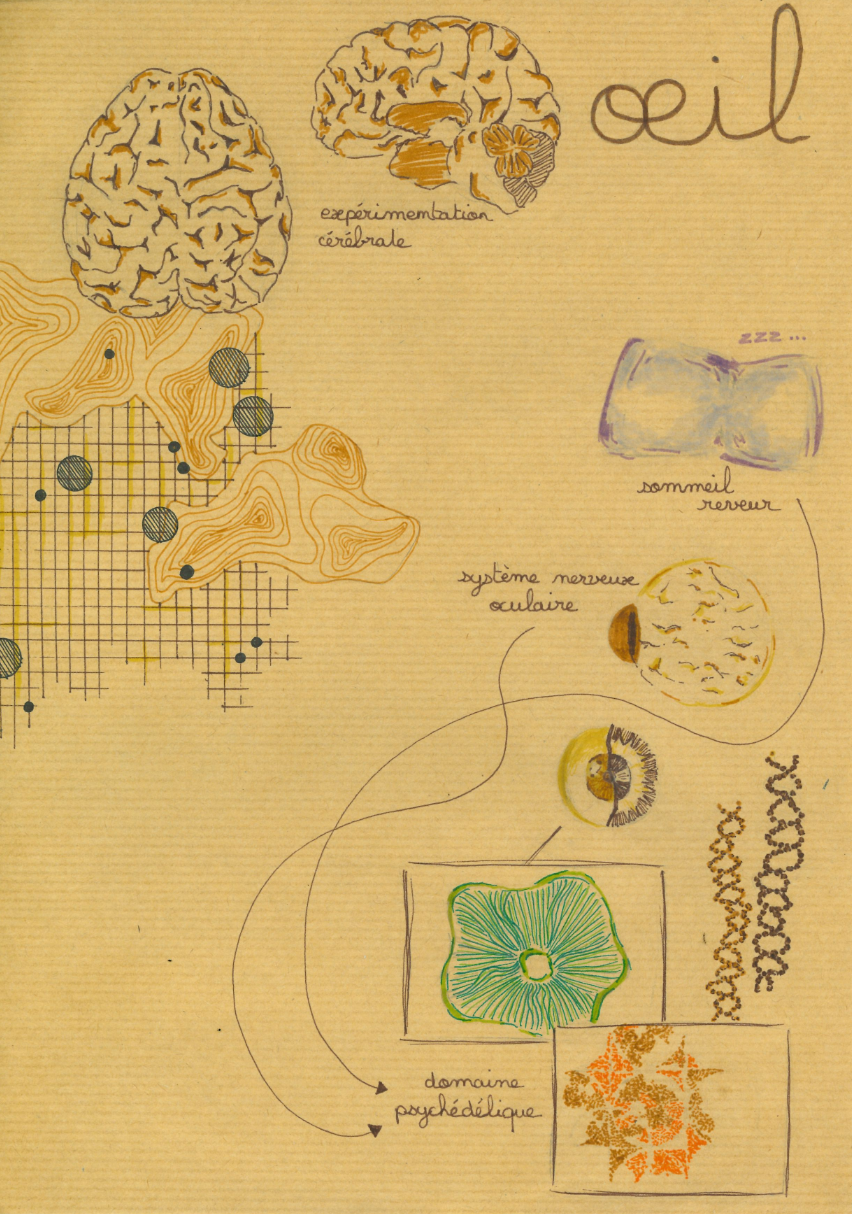 œil
expérimentation
cérébrale
zzz ...
sommeil
reveur
système nerveux
oculaire
domaine
psychédélique